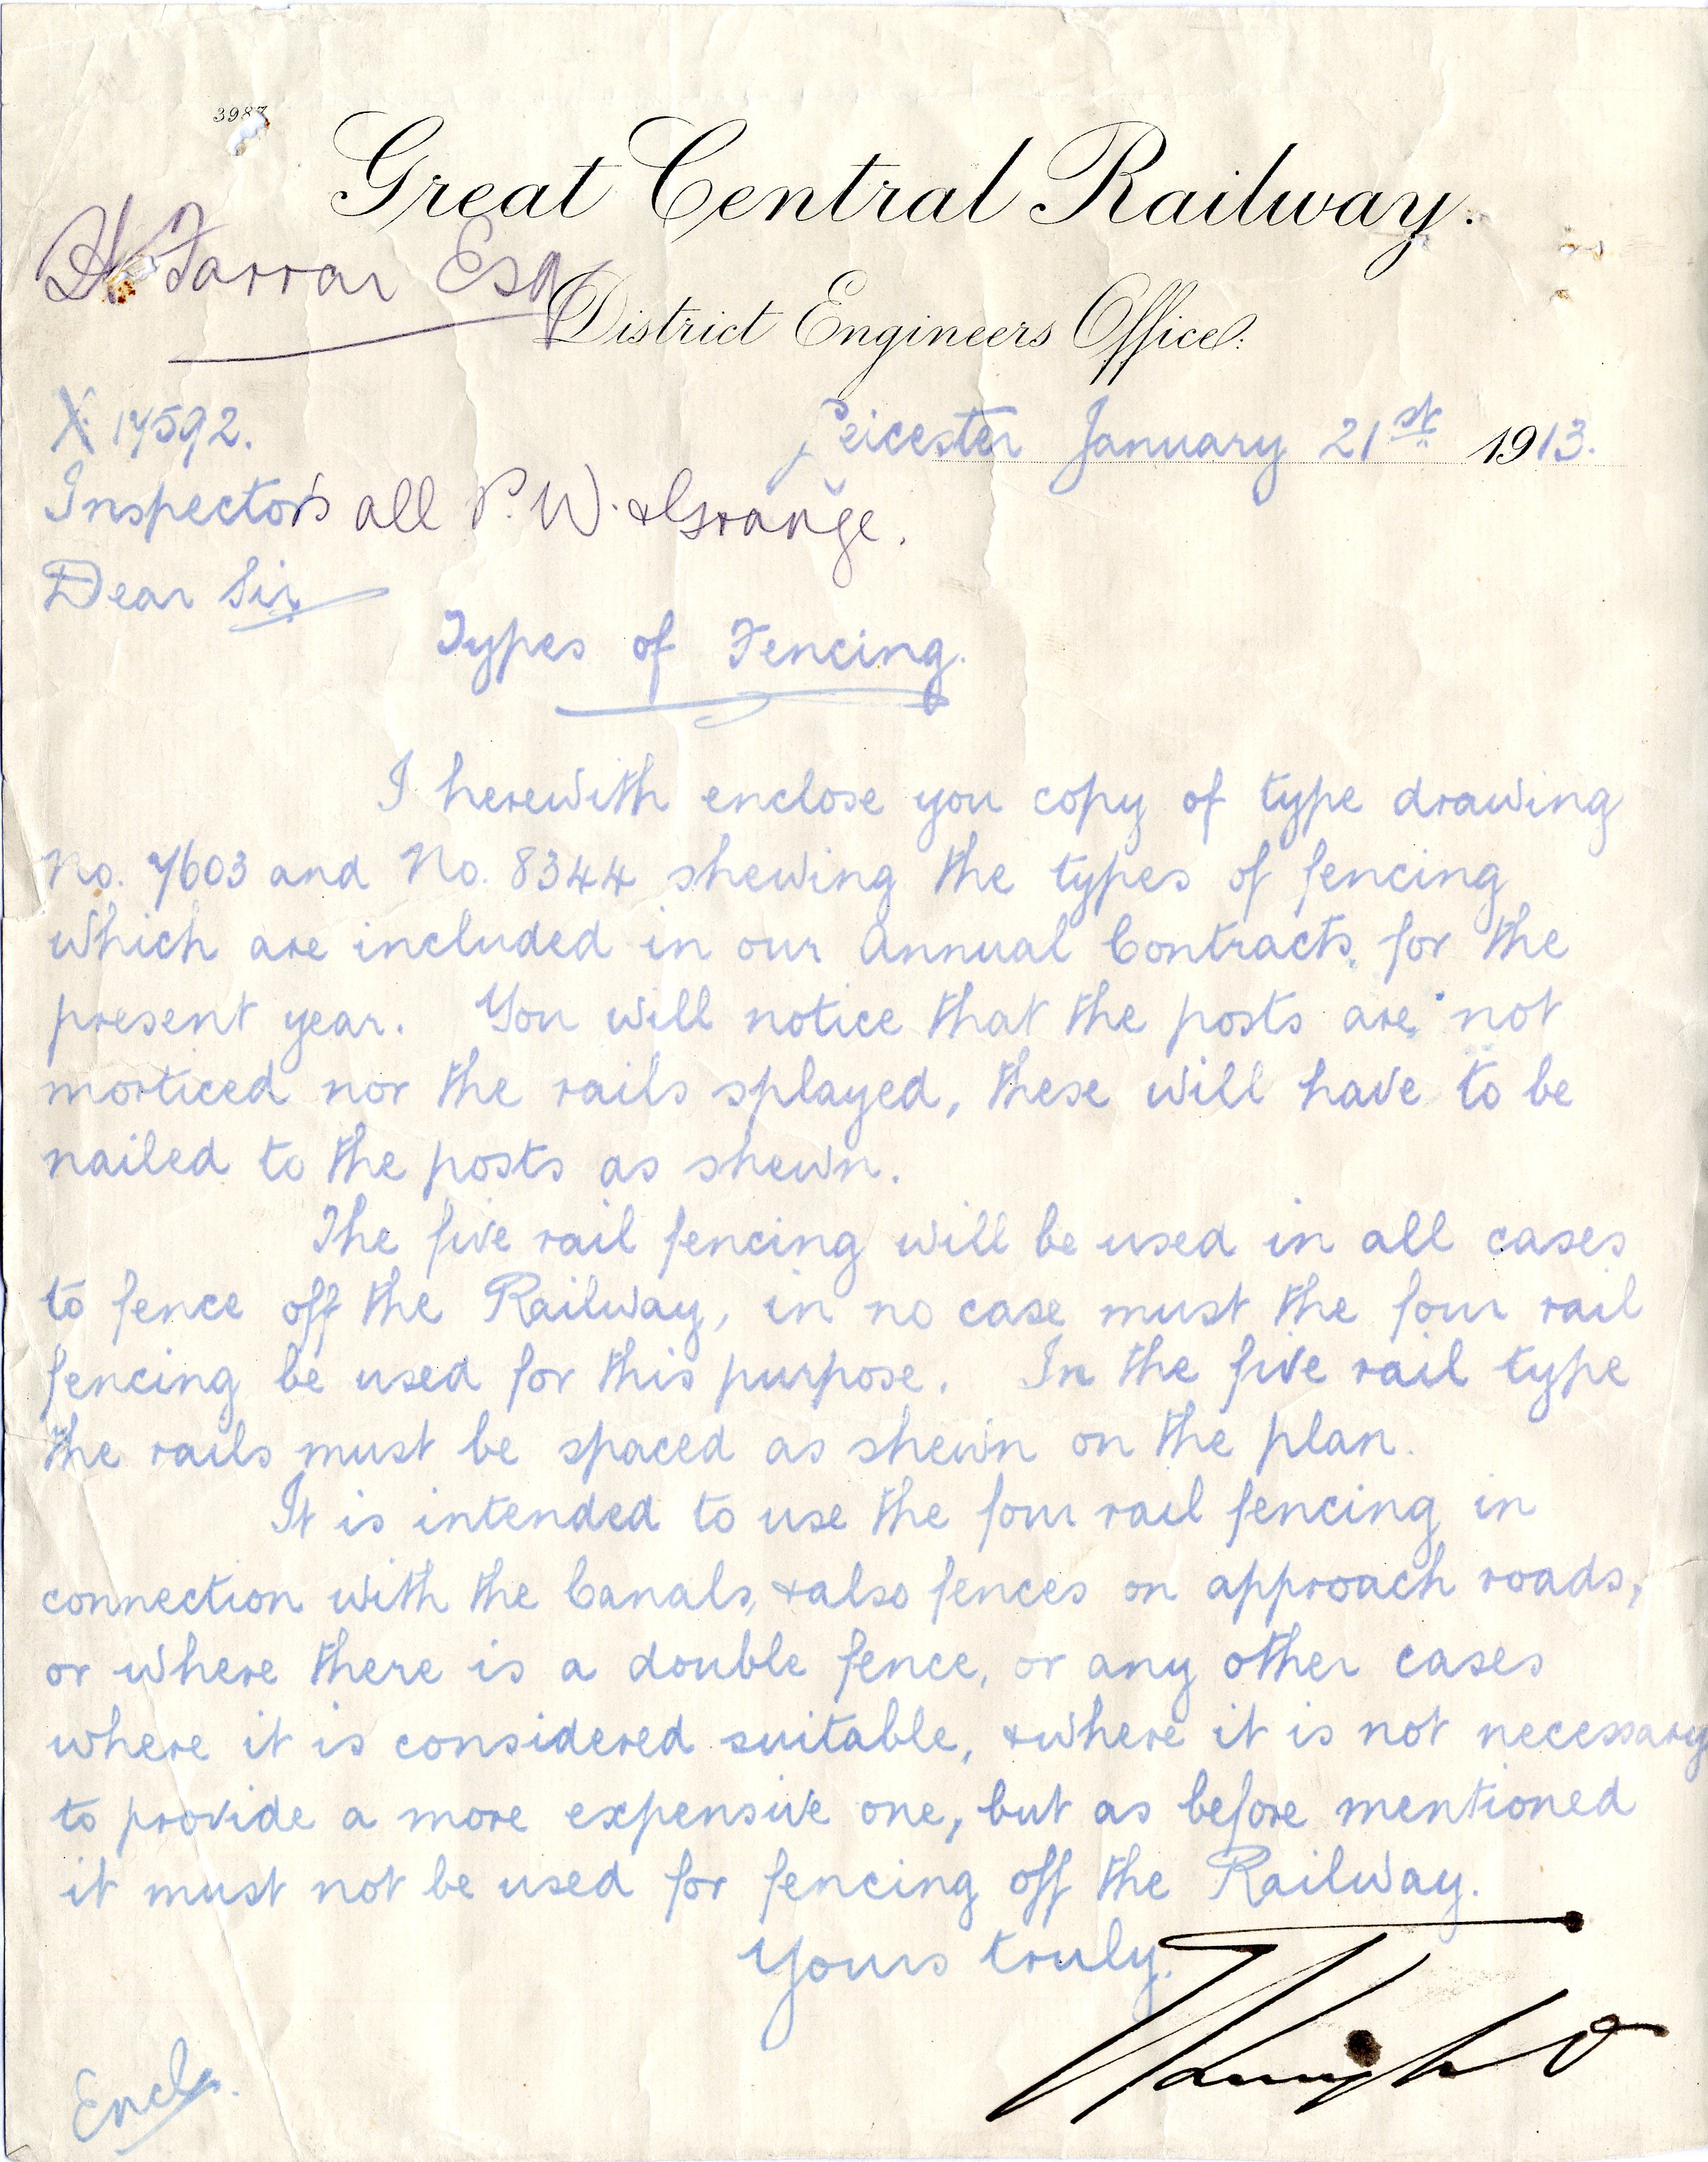 3987
Great Central Railway.
H Farrar Esq
District Engineers Office.
X 17592.
Leicester January 21st 1913.
Inspectors all P. W. & Grange.
Dear Sir
Types of Fencing.
I herewith enclose you copy of type drawing
No. 7603 and No. 8344 shewing the types of fencing
which are included in our Annual Contracts, for the
present year. You will notice that the posts are not
morticed nor the rails splayed, these will have to be
nailed to the posts as shewn.
The five rail fencing will be used in all cases
to fence off the Railway, in no case must the four rail
fencing be used for this purpose. In the five rail type
the rails must be spaced as shewn on the plan.
It is intended to use the four rail fencing in
connection with the Canals, & also fences on approach roads,
or where there is a double fence, or any other cases
where it is considered suitable, & where it is not necessary
to provide a more expensive one, but as before mentioned
it must not be used for fencing off the Railway.
Yours truly.
Encls.